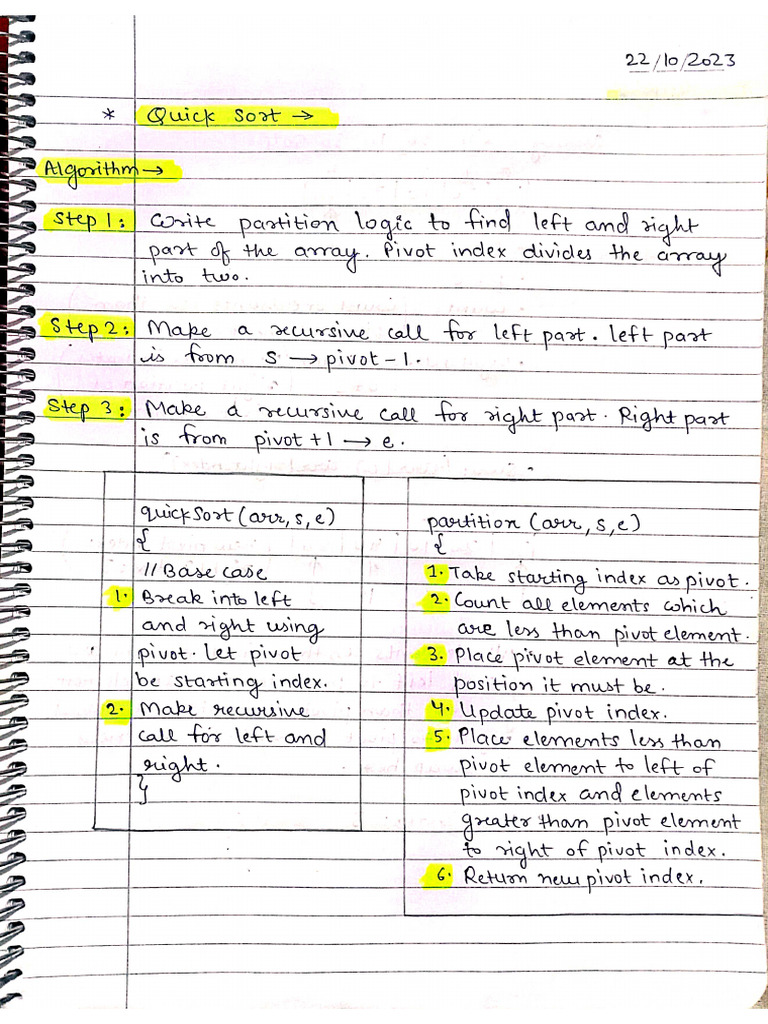 22/10/2023
* Quick Sort →
Algorithm →
Step 1: Write partition logic to find left and right
part of the array. Pivot index divides the array
into two.
Step 2: Make a recursive call for left part. left part
is from s → pivot - 1.
Step 3: Make a recursive call for right part. Right part
is from pivot + 1 → e.
quickSort (arr, s, e)
{
// Base case
1. Break into left
and right using
pivot. Let pivot
be starting index.
2. Make recursive
call for left and
right.
}
partition (arr, s, e)
{
1. Take starting index as pivot.
2. Count all elements which
are less than pivot element.
3. Place pivot element at the
position it must be.
4. Update pivot index.
5. Place elements less than
pivot element to left of
pivot index and elements
greater than pivot element
to right of pivot index.
6. Return new pivot index.